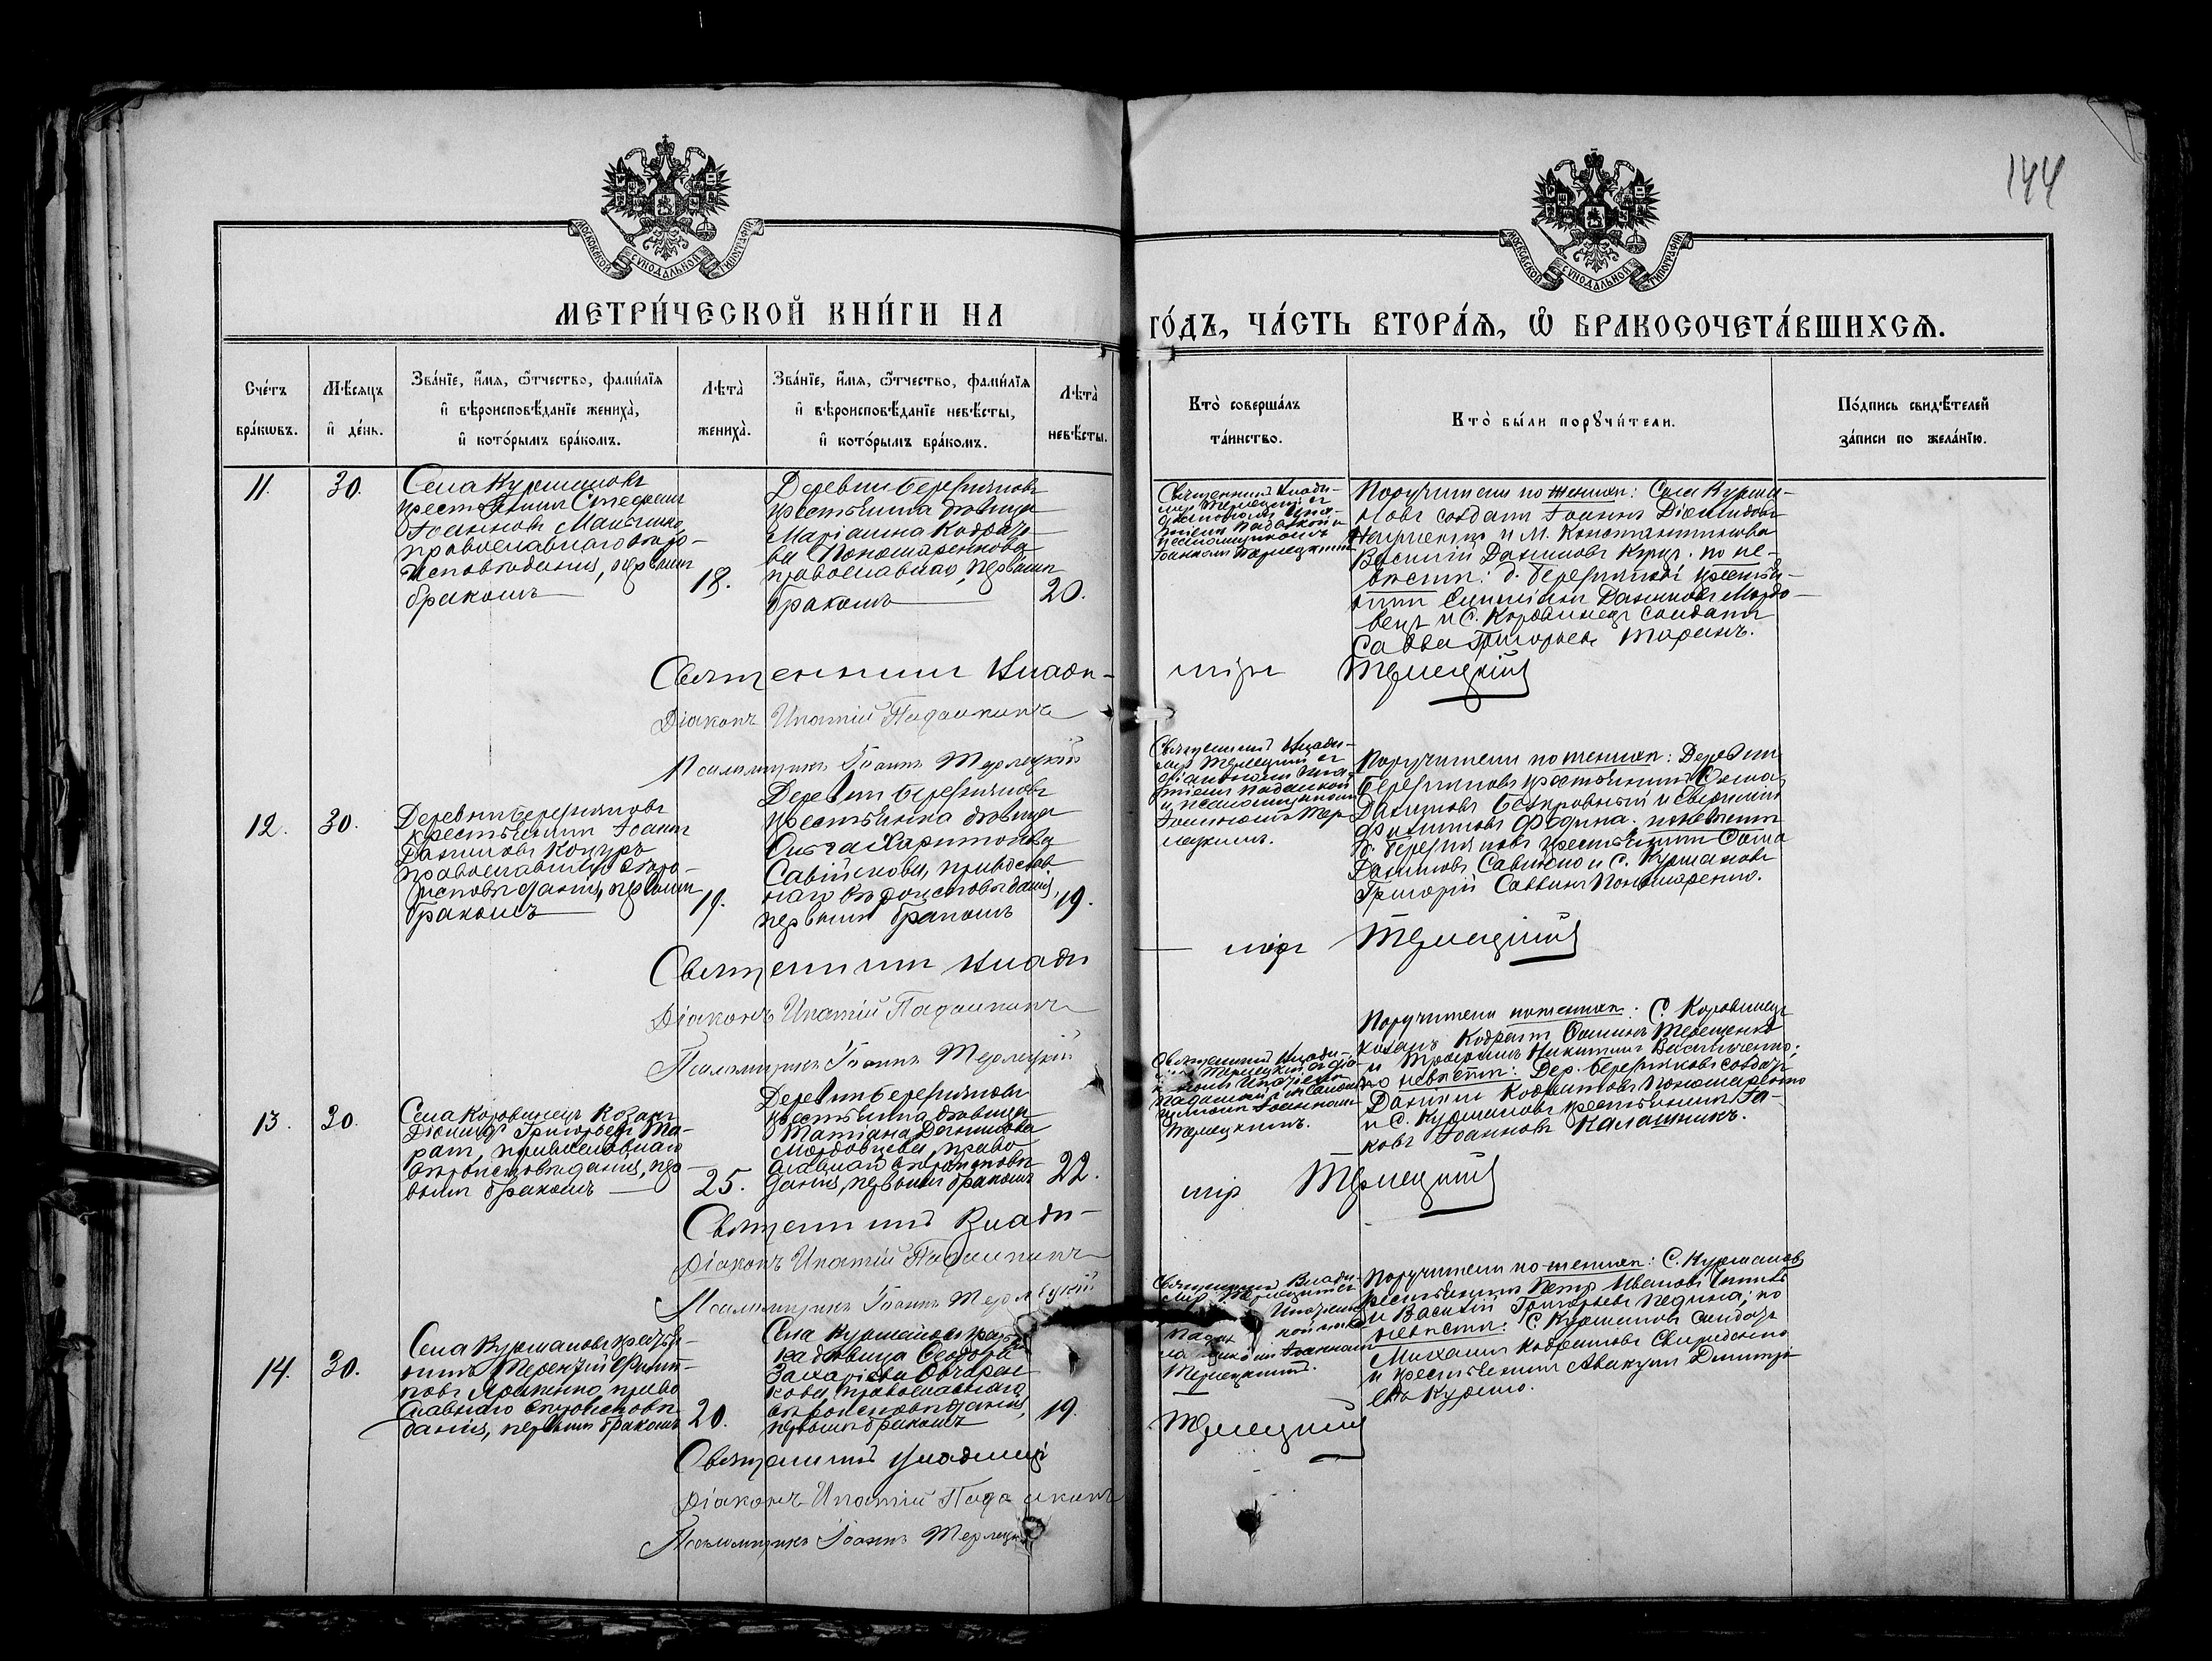 144
МОСКОВСКОЙ СУНОДАЛЬНОЙ ТИПОГРАФІИ
МОСКОВСКОЙ СУНОДАЛЬНОЙ ТИПОГРАФІИ
МЕТРИ́ЧЕСКОЙ КНИ́ГИ НА
ГО́ДЪ, ЧА́СТЬ ВТОРА́Я, Ѽ БРАКОСОЧЕТА́ВШИХСЯ.
Сче́тъ
бра́кωвъ.
Мѣ́сяцъ
и҆ де́нь.
Зва́нїе, и҆́мя, ѻ҆́тчество, фами́лїя
и҆ вѣроисповѣ́данїе жениха̀,
и҆ кото́рымъ бра́комъ.
Лѣта̀
жениха̀.
Зва́нїе, и҆́мя, ѻ҆́тчество, фами́лїя
и҆ вѣроисповѣ́данїе невѣ́сты,
и҆ кото́рымъ бра́комъ.
Лѣта̀
невѣ́сты.
Кто̀ соверша́лъ
та́инство.
Кто̀ бы́ли порꙋчи́тели.
По́дпись свидѣ́телей
за́писи по жела́нїю.
11.
30.
Села Курмановъ
крестьянинъ Стефанъ
Іоанновъ
православнаго вѣро-
исповѣданія, первымъ
бракомъ
18.
Деревни Березняковъ
крестьянка дѣвица
Маріанна Кодрато-
ва Пономаренкова
православнаго, первымъ
бракомъ
20.
Священникъ Влади-
міръ Терлецкій съ
діакономъ Ипа-
тіемъ Падалкой и
псаломщикомъ
Іоанномъ Терлецкимъ
Поручители по женихѣ: Села Курма-
новъ солдатъ Іоаннъ Діомидовъ
и М. Константинова
Василій Даниловъ по не-
вѣстѣ: д. Березняковъ крестья-
нинъ Даниловъ Мордо-
вецъ и С. Коровинецъ солдатъ
Савва Григорьевъ Таранъ.
Священникъ Влади-
міръ Терлецкій
Діаконъ Ипатій Падалкинъ
Псаломщикъ Іоаннъ Терлецкій
12.
30.
Деревни Березняковъ
крестьянинъ Іоаннъ
Даниловъ Коцуръ
православнаго вѣро-
исповѣданія, первымъ
бракомъ
19.
Деревни Березняковъ
крестьянка дѣвица
Ольга Харитонова
Савійскова, православ-
наго вѣроисповѣданія,
первымъ бракомъ
19.
Священникъ Влади-
міръ Терлецкій съ
діакономъ Ипа-
тіемъ Падалкой
и псаломщикомъ
Іоанномъ Тер-
лецкимъ.
Поручители по женихѣ: Деревни
Березняковъ крестьянинъ
Даниловъ Безкровный и
Филиповъ Федина. по невѣстѣ
д. Березняковъ крестьянинъ Савва
Даниловъ и С. Курмановъ
Григорій Саввинъ Пономаренко.
Священникъ Влади
міръ Терлецкій
Діаконъ Ипатій Падалкинъ
Псаломщикъ Іоаннъ Терлецкій
13.
30.
Села Коровинецъ козакъ
Діомидъ Григорьевъ Та-
ранъ, православнаго
вѣроисповѣданія, пер-
вымъ бракомъ
25.
Деревни Березняковъ
крестьянка дѣвица
Татіана Данилова
Мордовцева, право
славнаго вѣроисповѣ
данія, первымъ бракомъ
22.
Священникъ Влади-
міръ Терлецкій съ діа-
кономъ Ипатіемъ
Падалкой и псалом-
щикомъ Іоанномъ
Терлецкимъ.
Поручители по женихѣ: С. Коровинецъ
козакъ Кодратъ Терещенко
и Трофимъ Никитинъ Васильченко;
по невѣстѣ: Дер. Березняковъ солдатъ
Даніилъ Кодратовъ Пономаренко
и С. Курмановъ крестьянинъ Іа-
ковъ Іоанновъ Калашникъ.
Священникъ Влади-
міръ Терлецкій
Діаконъ Ипатій Падалкинъ
Псаломщикъ Іоаннъ Терлецкій
14.
30.
Села Курмановъ крестья-
нинъ Терентій Филип-
повъ Яременко, право
славнаго вѣроисповѣ
данія, первымъ бракомъ
20.
Села Курмановъ крестьян
ка дѣвица Ѳеодора
Захаріева Овчарен
кова, православнаго
вѣроисповѣданія,
первымъ бракомъ
19.
Священникъ Влади-
міръ Терлецкій съ
Ипатіемъ
Іоанномъ
Терлецкимъ.
Поручители по женихѣ: С. Курмановъ
крестьянинъ Петръ Ивановъ
и Василій Григорьевъ Педина; по
невѣстѣ: С. Курмановъ солдатъ
Михаилъ Кодратовъ Свириденко
и крестьянинъ Аввакумъ Димитрі-
евъ
Священникъ Владиміръ
Терлецкій
Діаконъ Ипатій Падалкинъ
Псаломщикъ Іоаннъ Терлецкій